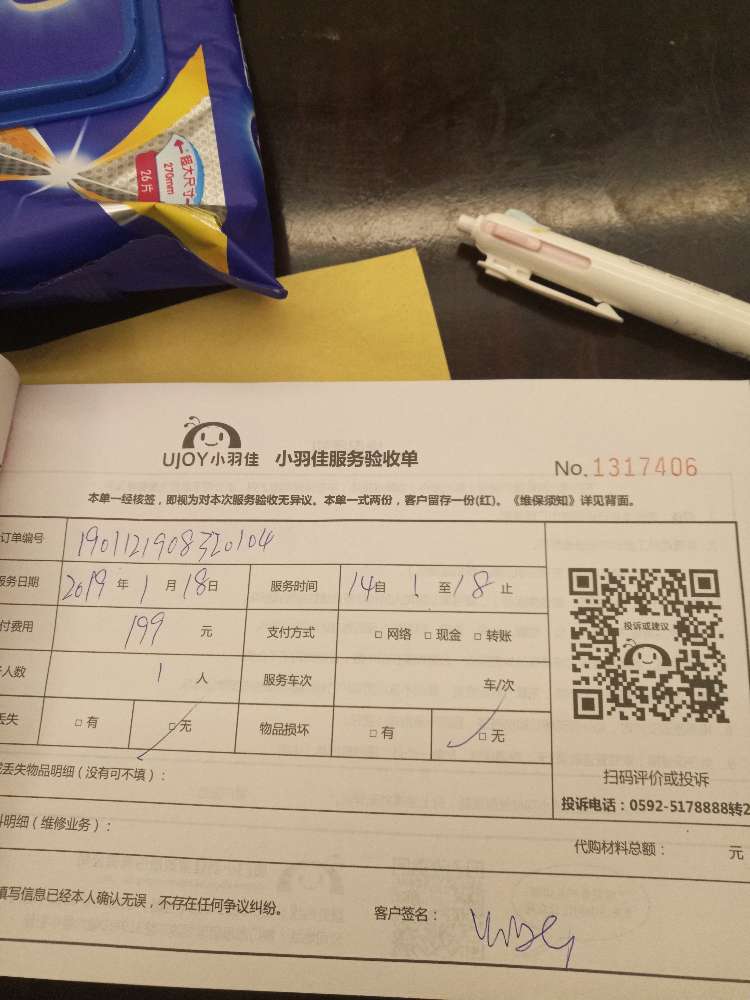 超大尺寸
270mm
26片
UJOY小羽佳 小羽佳服务验收单
No.1317406
本单一经核签，即视为对本次服务验收无异议。本单一式两份，客户留存一份(红)。《维保须知》详见背面。
订单编号
服务日期 2019 年 1 月 18 日 服务时间 14 自 至 18 止
付费用 199 元 支付方式 □ 网络 □ 现金 □ 转账
人数 1 人 服务车次 车/次
丢失 □ 有 □ 无 物品损坏 □ 有 □ 无
投诉或建议
扫码评价或投诉
投诉电话：0592-5178888转2
丢失物品明细（没有可不填）：
料明细（维修业务）：
代购材料总额： 元
填写信息已经本人确认无误，不存在任何争议纠纷。
客户签名：